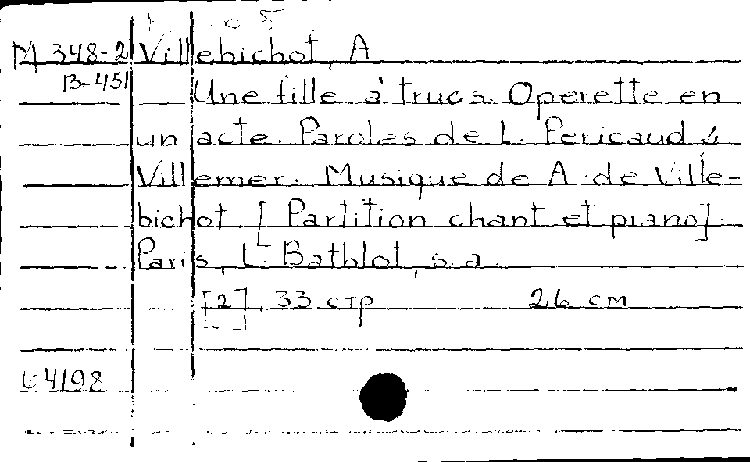 М 348-2 Villebichot, A
В-451
Une fille à trucs. Operette en
un acte. Paroles de L. Pericaud &
Villemer. Musique de A. de Ville-
bichot [Partition chant et piano].
Paris, L. Bathlot, s.a.
[2], 33 стр 26 см
64198